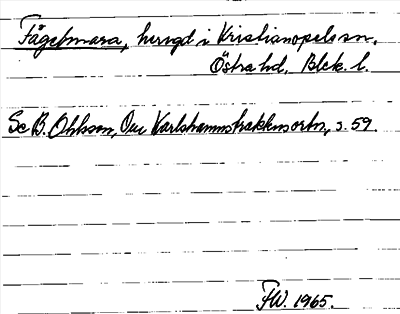 Fågelmara, herrgd i Kristianopels sn,
Östra hd, Blek. l.
Se B. Ohlsson, Om Karlshamnstraktens ortn, s. 59.
FW. 1965.